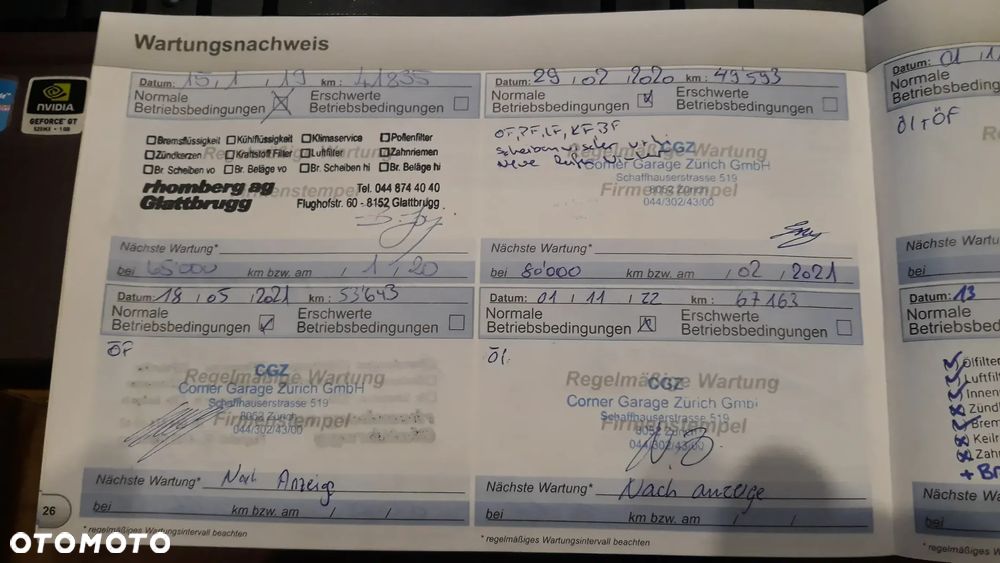 Wartungsnachweis
Datum: 15, 1, 19 km: 41835
Normale Betriebsbedingungen
Erschwerte Betriebsbedingungen
Bremsflüssigkeit Kühlflüssigkeit Klimaservice Pollenfilter
Zündkerzen Kraftstoff Filter Luftfilter Zahnriemen
Br Scheiben vo Br. Beläge vo Br. Scheiben hi Br. Beläge hi
Regelmäßige Wartung
Firmenstempel
rhomberg ag Tel. 044 874 40 40
Glattbrugg Flughofstr. 60 - 8152 Glattbrugg
Nächste Wartung*
bei 65'000 km bzw. am / 1 / 20
Datum: 29, 02, 2020 km: 49'593
Normale Betriebsbedingungen
Erschwerte Betriebsbedingungen
Scheibenwischer
Neue
Regelmäßige Wartung
CGZ
Corner Garage Zürich GmbH
Schaffhauserstrasse 519
Firmenstempel
8052 Zürich
044/302/43/00
Nächste Wartung*
bei 80'000 km bzw. am / 02 / 2021
Datum: 18, 05, 2021 km: 53'643
Normale Betriebsbedingungen
Erschwerte Betriebsbedingungen
ÖF
CGZ
Regelmäßige Wartung
Corner Garage Zürich GmbH
Schaffhauserstrasse 519
8052 Zürich
Firmenstempel
044/302/43/00
Nächste Wartung* Nach Anzeige
bei km bzw. am / /
* regelmäßiges Wartungsintervall beachten
26
Datum: 01, 11, 22 km: 67163
Normale Betriebsbedingungen
Erschwerte Betriebsbedingungen
Öl
Regelmäßige Wartung
CGZ
Corner Garage Zürich GmbH
Schaffhauserstrasse 519
Firmenstempel
8052 Zürich
044/302/43/00
Nächste Wartung* Nach anzeige
bei km bzw. am / /
* regelmäßiges Wartungsintervall beachten
Datum: 01, 1
Normale
Betriebsbeding
Öl + ÖF
Nächste Wa
bei
Datum: 13
Normale
Betriebsbed
Ölfilter
Luftfil
Innen
Zünd
Brem
Keilr
Zahn
+ Br
Nächste Wa
bei
* regelmäßig
NVIDIA
GEFORCE GT
OTOMOTO